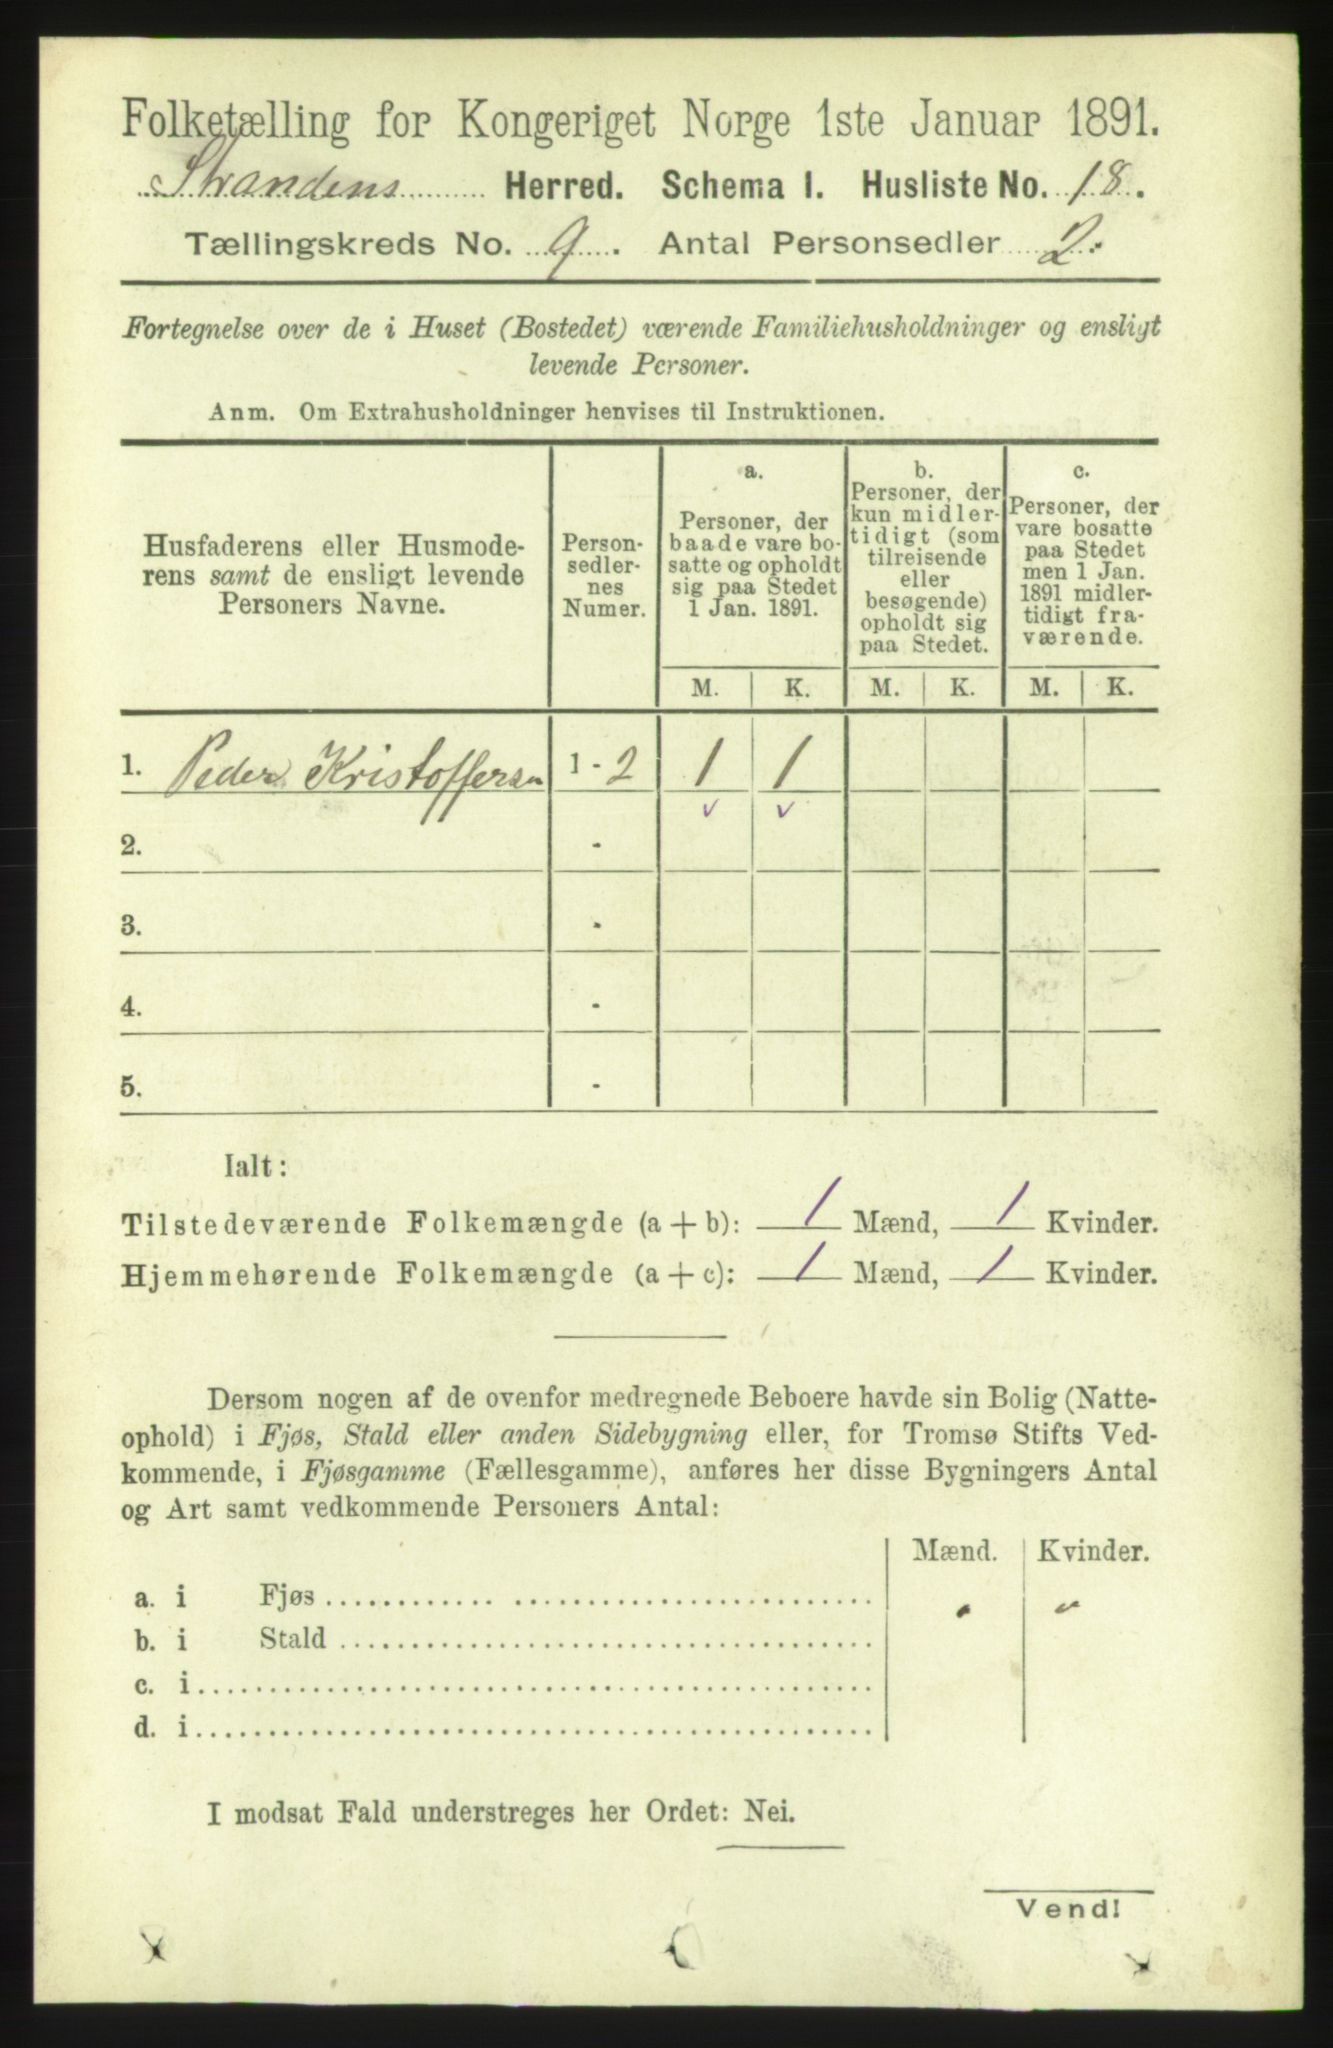 Folketælling for Kongeriget Norge 1ste Januar 1891.
Strandens Herred. Schema I. Husliste No. 18.
Tællingskreds No. 9. Antal Personsedler 2.
Fortegnelse over de i Huset (Bostedet) værende Familiehusholdninger og ensligt
levende Personer.
Anm. Om Extrahusholdninger henvises til Instruktionen.
Husfaderens eller Husmode-
rens samt de ensligt levende
Personers Navne.
Person-
sedler-
nes
Numer.
a.
Personer, der
baade vare bo-
satte og opholdt
sig paa Stedet
1 Jan. 1891.
b.
Personer, der
kun midler-
tidigt (som
tilreisende
eller
besøgende)
opholdt sig
paa Stedet.
c.
Personer, der
vare bosatte
paa Stedet
men 1 Jan.
1891 midler-
tidigt fra-
værende.
M. K. M. K. M. K.
1. Peder Kristoffersen 1 - 2 1 1
2. -
3. -
4. -
5. -
Ialt:
Tilstedeværende Folkemængde (a + b): 1 Mænd, 1 Kvinder.
Hjemmehørende Folkemængde (a + c): 1 Mænd, 1 Kvinder.
Dersom nogen af de ovenfor medregnede Beboere havde sin Bolig (Natte-
ophold) i Fjøs, Stald eller anden Sidebygning eller, for Tromsø Stifts Ved-
kommende, i Fjøsgamme (Fællesgamme), anføres her disse Bygningers Antal
og Art samt vedkommende Personers Antal:
Mænd. Kvinder.
a. i Fjøs
b. i Stald
c. i
d. i
I modsat Fald understreges her Ordet: Nei.
Vend!